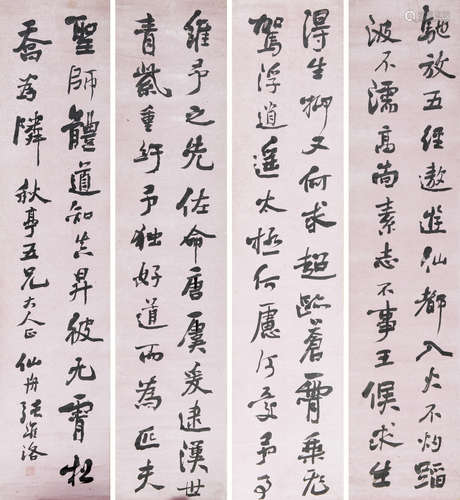 馳放五經遨遊仙都入火不灼蹈
波不濡高尚素志不事王侯求生
得生抑又何求超跡蒼霄乘飛
駕浮逍遙太極何慮何憂予
維予之先佐命唐虞爰逮漢世
青紫重紆予独好道而為匹夫
聖師體道知真昇彼九霄松
喬為隣 秋亭五兄大人正 仙舟張洛